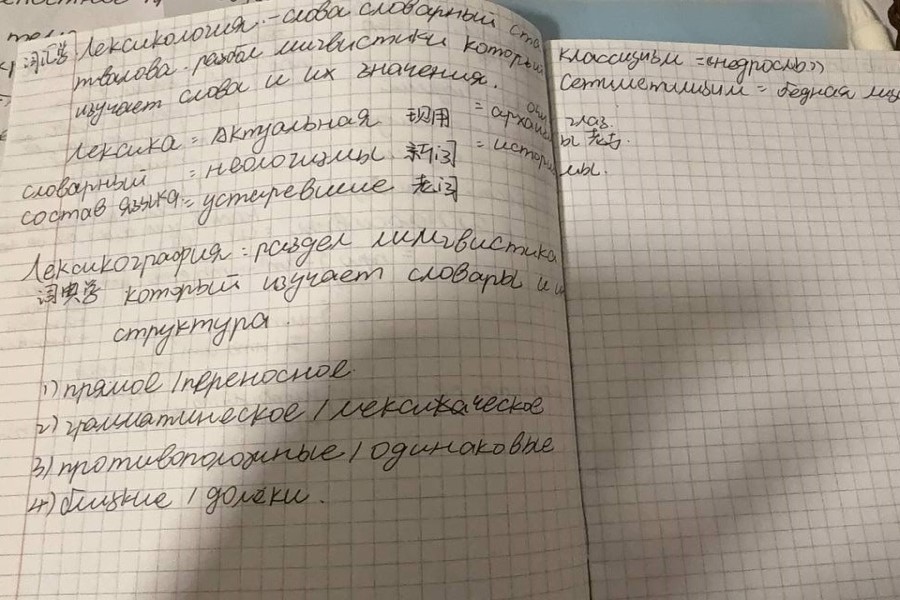 词汇学 Лексикология - слова словарный
твалова. раздел лингвистики который
изучает слова и их значения.
Лексика = Актуальная 现用 = архаи
словарный = неологизмы 新词 = истори
состав языка = устаревшие 老词
Лексикография : раздел лингвистика
词典学 который изучает словары и их
структура.
1) прямое / переносное.
2) грамматическое / лексикаческое
3) противоположные / одинаковые
4) близкие / долеки.
классицизм = «недросль»
Сетиметицизм = бедная
глаз.
ы
мы.